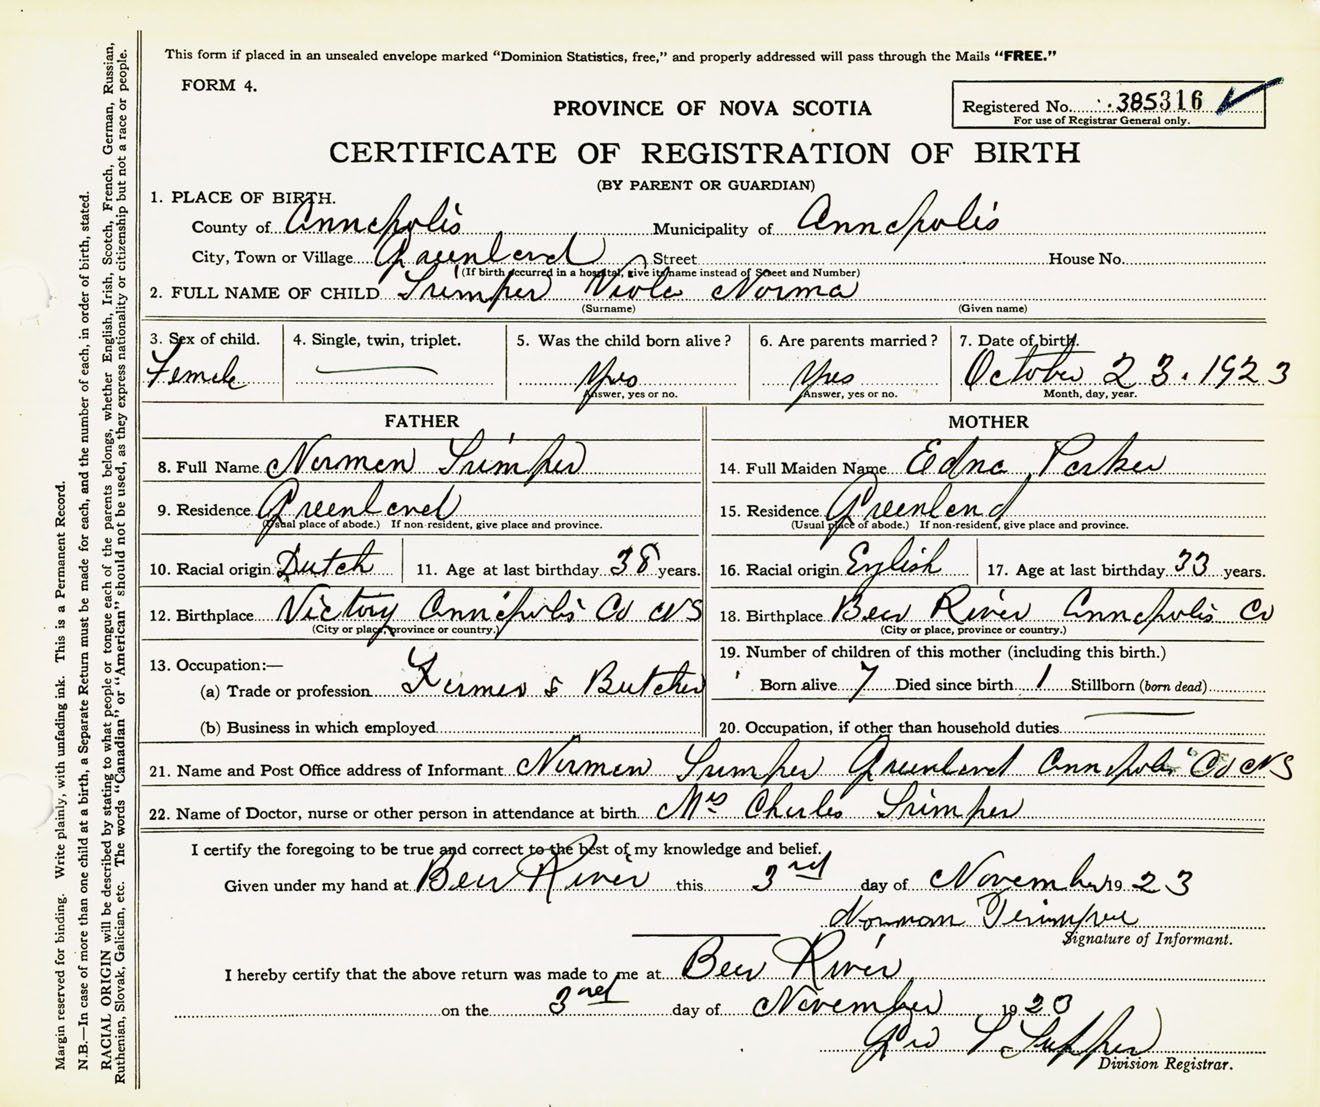 This form if placed in an unsealed envelope marked "Dominion Statistics, free," and properly addressed will pass through the Mails "FREE."
FORM 4.
PROVINCE OF NOVA SCOTIA
Registered No. 385316
For use of Registrar General only.
CERTIFICATE OF REGISTRATION OF BIRTH
(BY PARENT OR GUARDIAN)
1. PLACE OF BIRTH.
County of Annapolis Municipality of Annapolis
City, Town or Village Greenland Street House No.
(If birth occurred in a hospital, give its name instead of Street and Number)
2. FULL NAME OF CHILD Trimper Viola Norma
(Surname) (Given name)
3. Sex of child. 4. Single, twin, triplet. 5. Was the child born alive? 6. Are parents married? 7. Date of birth.
Female Yes Yes October 23. 1923
Answer, yes or no. Answer, yes or no. Month, day, year.
FATHER MOTHER
8. Full Name Norman Trimper 14. Full Maiden Name Edna Parker
9. Residence Greenland 15. Residence Greenland
(Usual place of abode.) If non-resident, give place and province. (Usual place of abode.) If non-resident, give place and province.
10. Racial origin Dutch 11. Age at last birthday 38 years. 16. Racial origin English 17. Age at last birthday 33 years.
12. Birthplace Victory Annapolis Co NS 18. Birthplace Bear River Annapolis Co
(City or place, province or country.) (City or place, province or country.)
13. Occupation:— 19. Number of children of this mother (including this birth.)
(a) Trade or profession Farmer & Butcher Born alive 7 Died since birth 1 Stillborn (born dead)
(b) Business in which employed 20. Occupation, if other than household duties
21. Name and Post Office address of Informant Norman Trimper Greenland Annapolis Co NS
22. Name of Doctor, nurse or other person in attendance at birth Mrs Charles Trimper
I certify the foregoing to be true and correct to the best of my knowledge and belief.
Given under my hand at Bear River this 3rd day of November 1923
Norman Trimper
Signature of Informant.
I hereby certify that the above return was made to me at Bear River
on the 3rd day of November 1923
Geo
Division Registrar.
Margin reserved for binding. Write plainly, with unfading ink. This is a Permanent Record.
N.B.—In case of more than one child at a birth, a Separate Return must be made for each, and the number of each, in order of birth, stated.
RACIAL ORIGIN will be described by stating to what people or tongue each of the parents belongs, whether English, Irish, Scotch, French, German, Russian,
Ruthenian, Slovak, Galician, etc. The words "Canadian" or "American" should not be used, as they express nationality or citizenship but not a race or people.